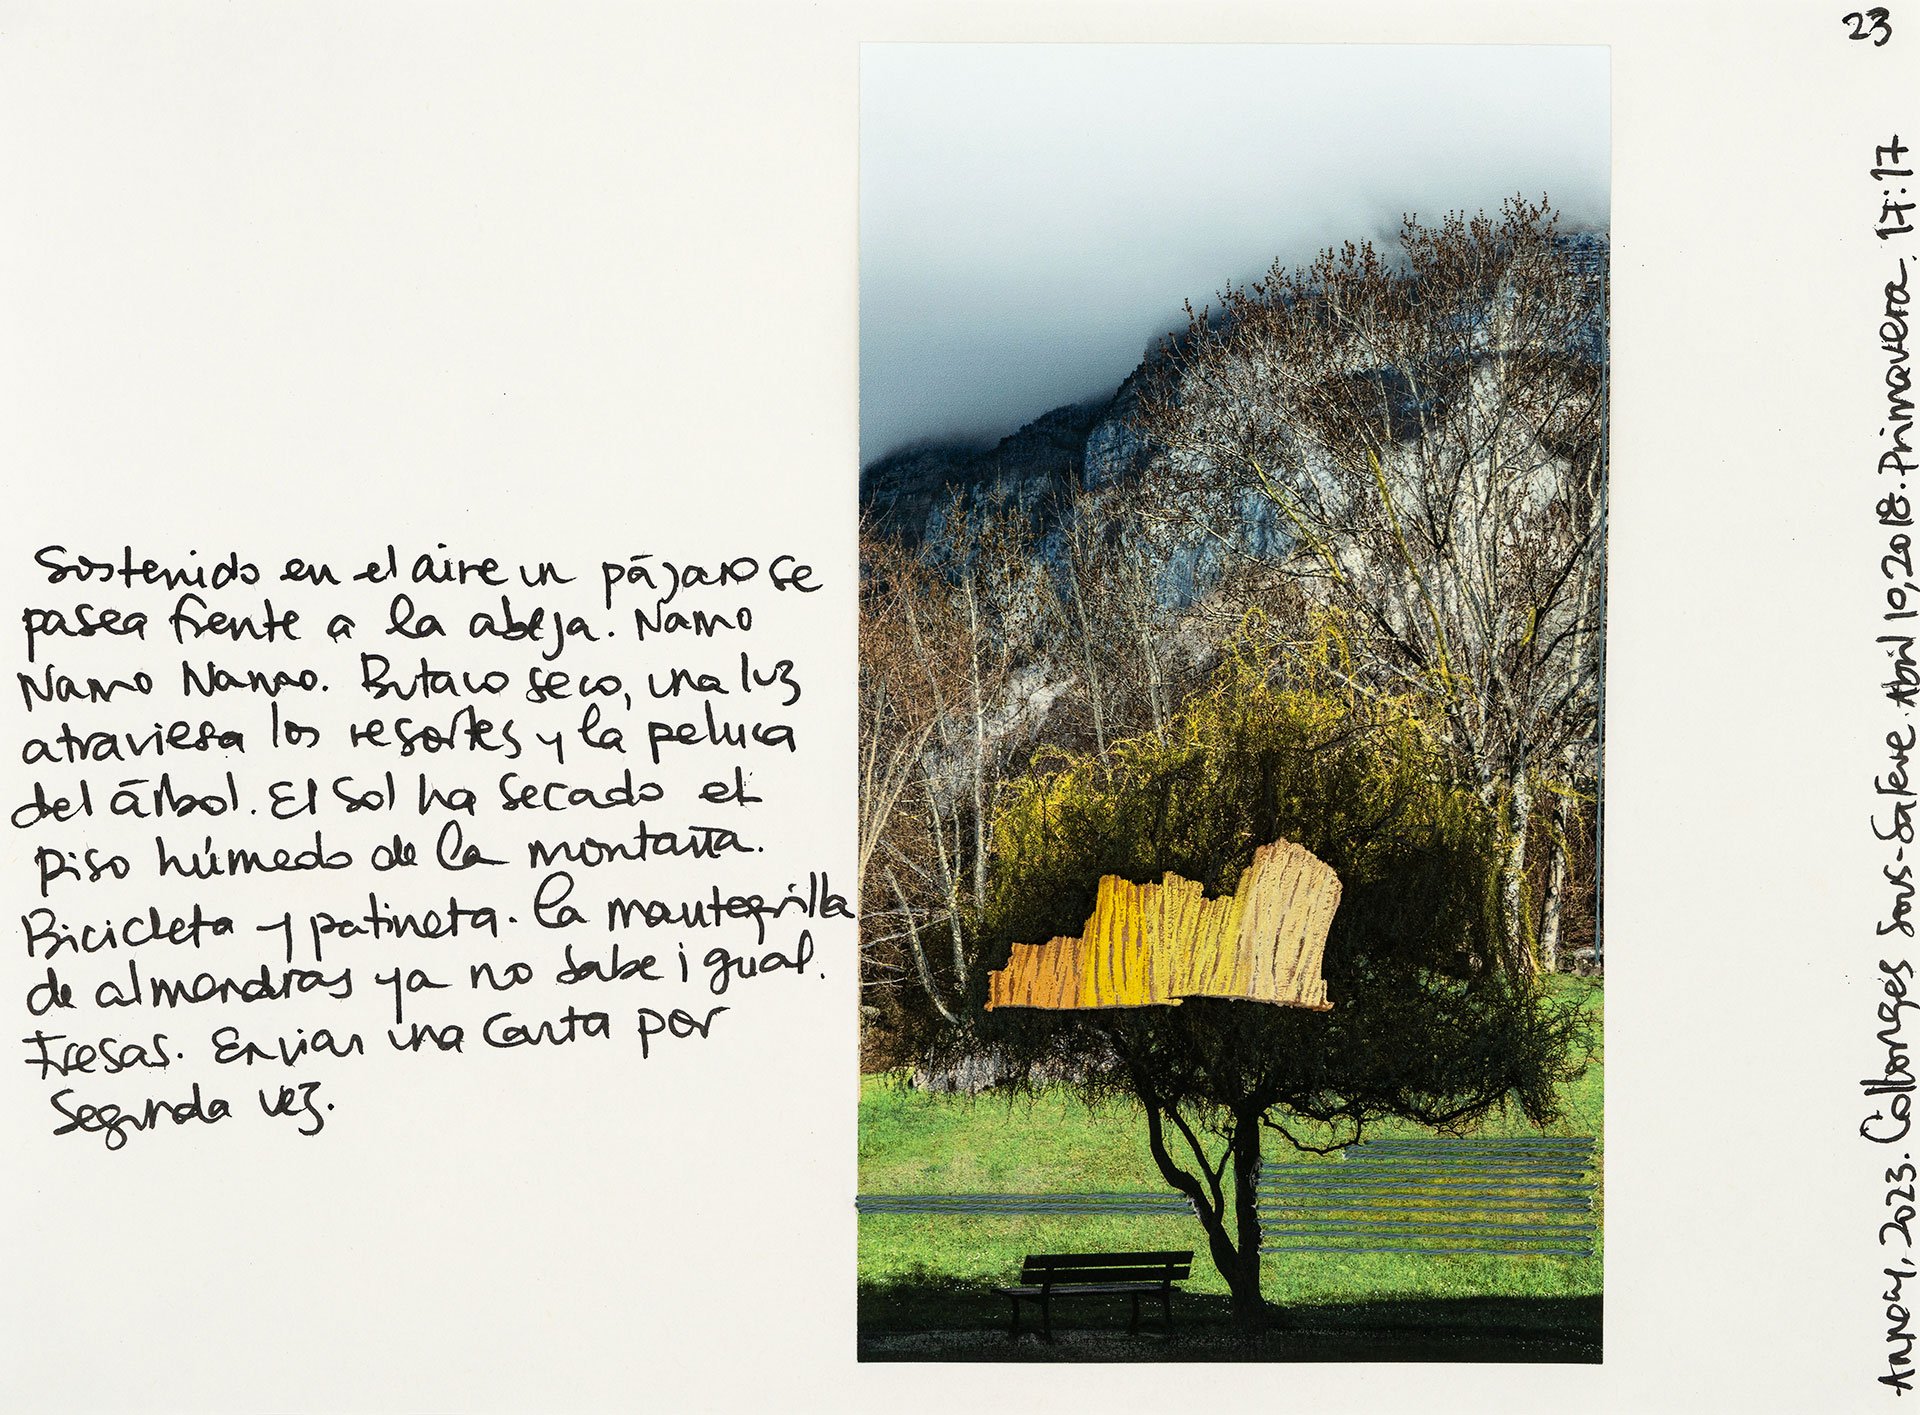 23
Sostenido en el aire un pájaro se
pasea frente a la abeja. Namo
Namo Namo. Butaco seco, una luz
atraviesa los resortes y la peluca
del árbol. El sol ha secado el
piso húmedo de la montaña.
Bicicleta y patineta. La mantequilla
de almendras ya no sabe igual.
Fresas. Enviar una carta por
segunda vez.
2023. Collonges Sous-Salève. Abril 10, 2018. Primavera. 17:17